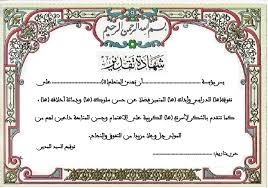 بسم الله الرحمن الرحيم
شهادة تقدير
يسر مؤسسة .................... أن تهدي التلميذ(ة) .................... على
تفوقه(ها) الدراسي وأدائه (ها) المتميز فضلا عن حسن سلوكه (ها) ودماثة أخلاقه (ها)
كما تتقدم بالشكر لأسرته (ها) الكريمة على الاهتمام وحسن المتابعة داعين لهم من
المولى عز وجل مزيدا من التفوق والنجاح.
توقيع السيد المدير
حرر بتاريخ: